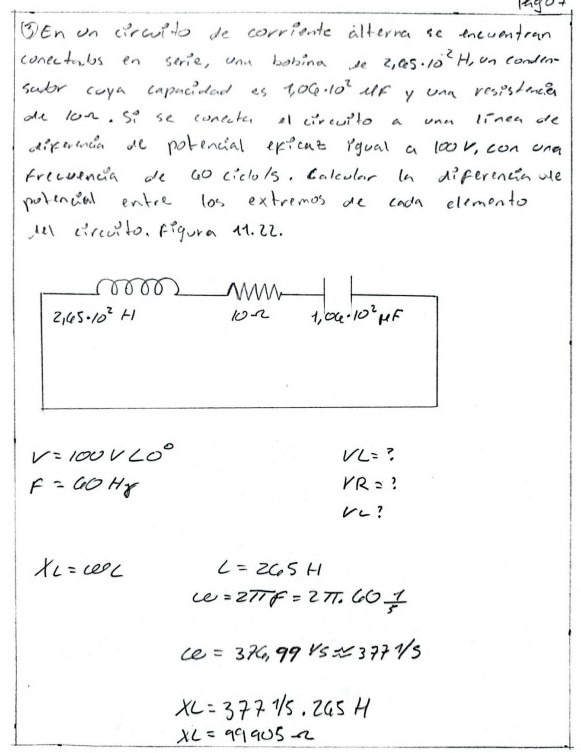 Pag 07
③ En un circuito de corriente álterna se encuentran
conectados en serie, una bobina de 2,65·10² H, un conden-
sador cuya capacidad es 1,06·10² µF y una resistencia
de 10Ω. Si se conecta el circuito a una línea de
diferencia de potencial eficaz igual a 100 V, con una
frecuencia de 60 ciclo/s. Calcular la diferencia de
potencial entre los extremos de cada elemento
del circuito. Figura 11.22.
2,65·10² H 10Ω 1,06·10² µF
V = 100 V ∠0° VL = ?
F = 60 Hz VR = ?
VC ?
XL = ωL L = 265 H
ω = 2πF = 2π. 60 1/s
ω = 376,99 1/s ≈ 377 1/s
XL = 377 1/s . 265 H
XL = 99905 Ω